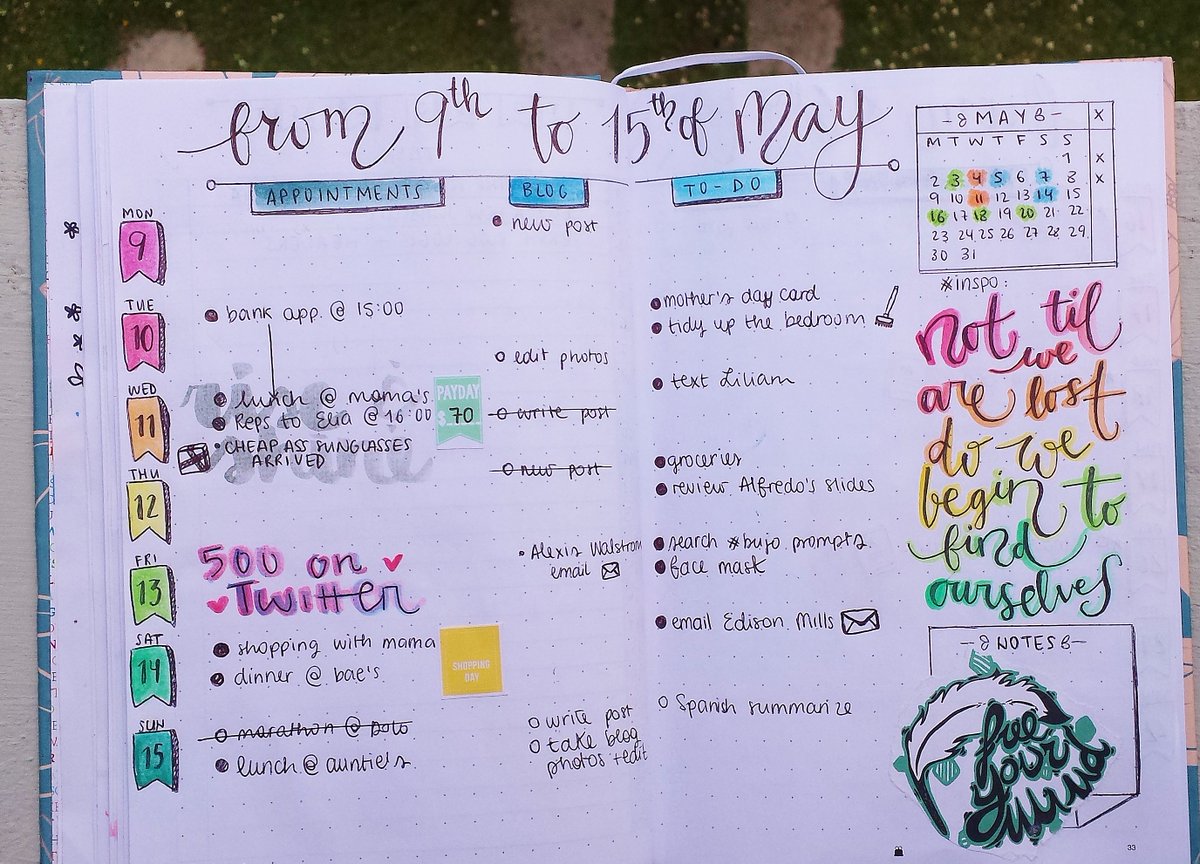 from 9th to 15th of May
APPOINTMENTS
BLOG
TO-DO
MON
9
• new post
TUE
10
• bank app. @ 15:00
○ edit photos
• mother's day card
• tidy up the bedroom
WED
11
• lunch @ mama's
• Reps to Elia @ 16:00
• CHEAP ASS SUNGLASSES
ARRIVED
PAYDAY
$ 70
○ write post
• text Liliam
THU
12
○ new post
• groceries
• review Alfredo's slides
FRI
13
500 on
Twitter
• Alexis Walstrom
email
• search #bujo prompts
• face mask
SAT
14
• shopping with mama
• dinner @ bae's
SHOPPING
DAY
• email Edison Mills
SUN
15
○ marathon @ Dolo
• lunch @ auntie's
○ write post
○ take blog
photos + edit
○ Spanish summarize
MAY
X
M T W T F S S
1 X
2 3 4 5 6 7 8 X
9 10 11 12 13 14 15
16 17 18 19 20 21 22
23 24 25 26 27 28 29
30 31
#inspo:
not til
we
are lost
do we
begin to
find
ourselves
NOTES
free
your
mind
33